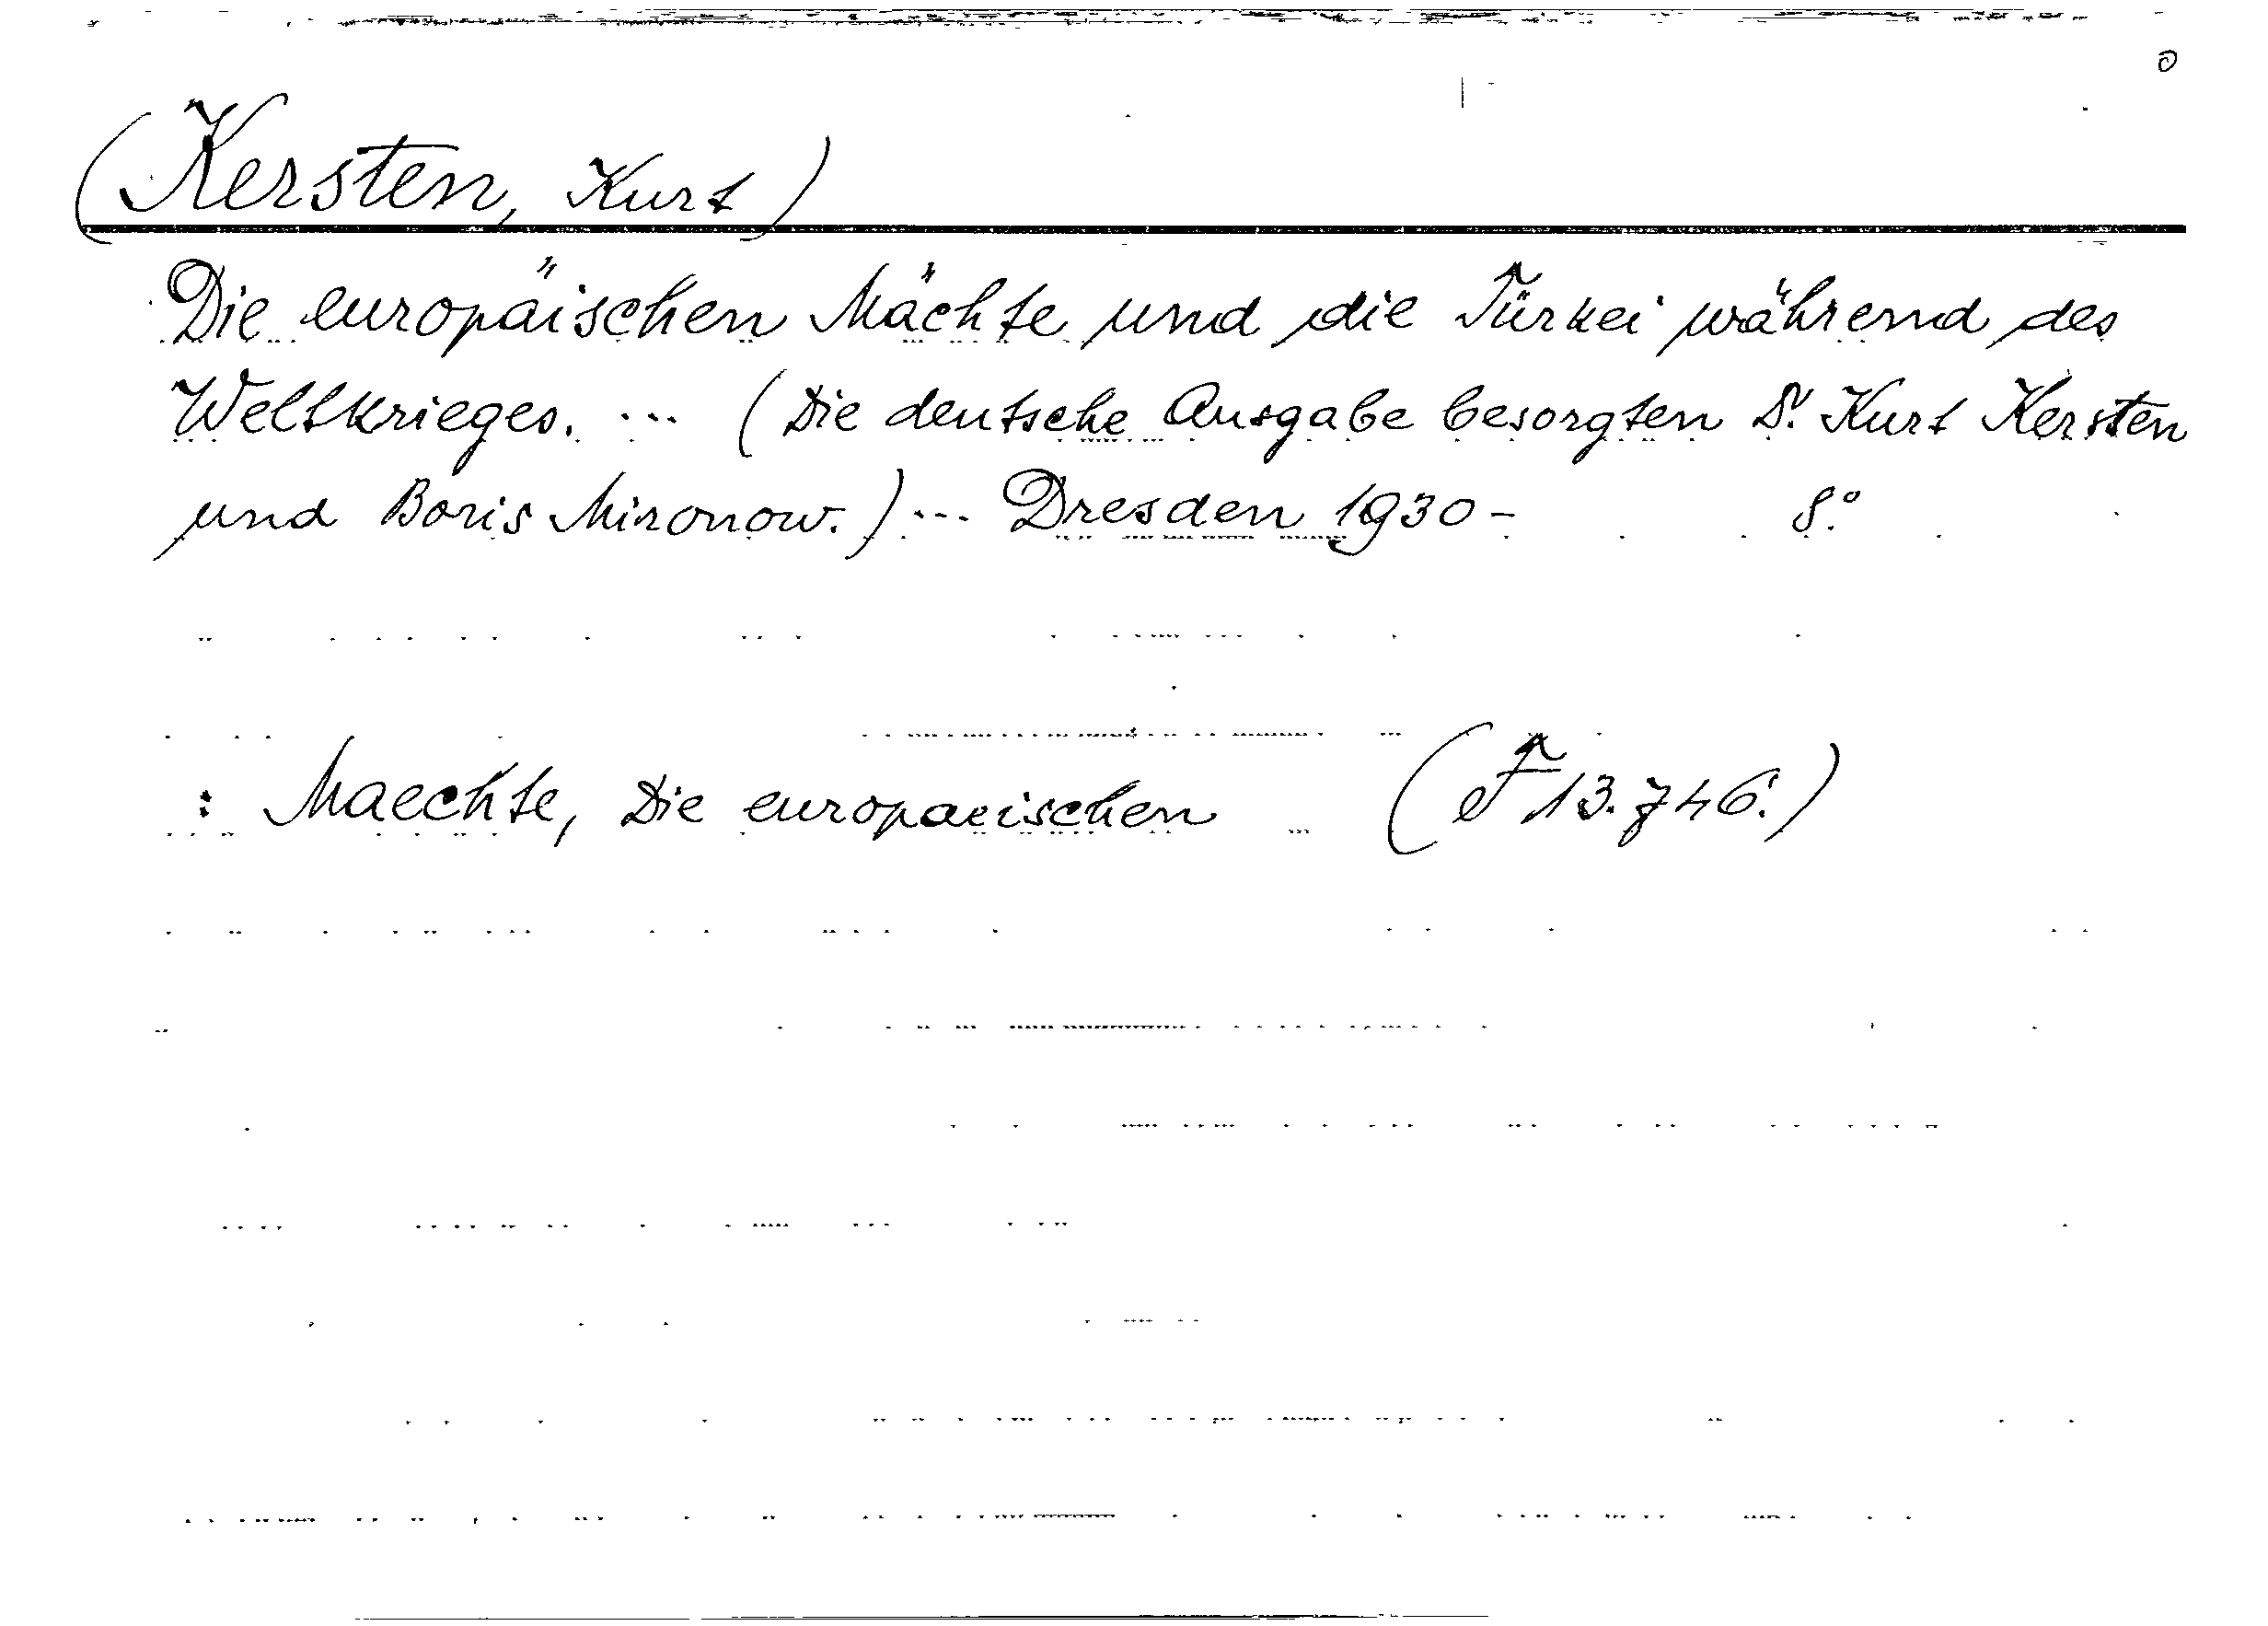 (Kersten, Kurt)
Die europäischen Mächte und die Türkei während des
Weltkrieges. ... (Die deutsche Ausgabe besorgten Dr. Kurt Kersten
und Boris Mironow.) ... Dresden 1930 – 8.°
: Maechte, Die europaeischen (F 13.746.)